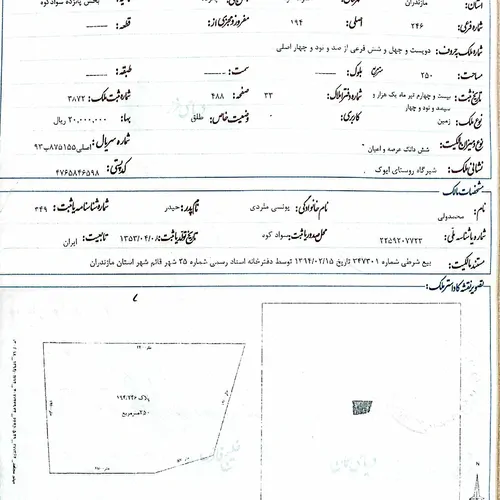 استان: مازندران بخش پانزده سوادکوه
شماره فرعی: ۲۴۶ اصلی: ۱۹۴ مفروز و مجزی از: قطعه:
شماره ملک بحروف: دویست و چهل و شش فرعی از صد و نود و چهار اصلی
مساحت: ۲۵۰ مترمربع بلوک: سمت: طبقه:
تاریخ ثبت: بیست و چهارم تیر ماه یک هزار و سیصد و نود و چهار شماره دفتر املاک: ۳۳ صفحه: ۴۸۸ شماره ثبت ملک: ۳۸۷۲
نوع ملک: زمین کاربری: وضعیت خاص: طلق بهاء: ۲۰,۰۰۰,۰۰۰ ریال
نوع و میزان مالکیت: شش دانگ عرصه و اعیان شماره سریال: اصلی ۸۷۵۱۵۵ب۹۳
نشانی ملک: شیرگاه روستای ایوک کدپستی: ۴۷۶۵۸۴۶۵۹۸
مشخصات مالک
نام: محمدولی نام خانوادگی: یونسی ملردی نام پدر: حیدر شماره شناسنامه یا ثبت: ۴۴۹
شماره یا شناسه ملی: ۲۲۵۹۲۰۷۷۲۳ محل صدور یا ثبت: سواد کوه تاریخ تولد یا ثبت: ۱۳۵۳/۰۴/۰۱ تابعیت: ایران
مستند مالکیت: بیع شرطی شماره ۲۴۷۳۰۱ تاریخ ۱۳۹۴/۰۲/۱۵ توسط دفترخانه اسناد رسمی شماره ۲۵ شهر قائم شهر استان مازندران
تصویر نقشه کاداستر ملک:
پلاک ۱۹۴/۲۴۶
۲۵۰مترمربع